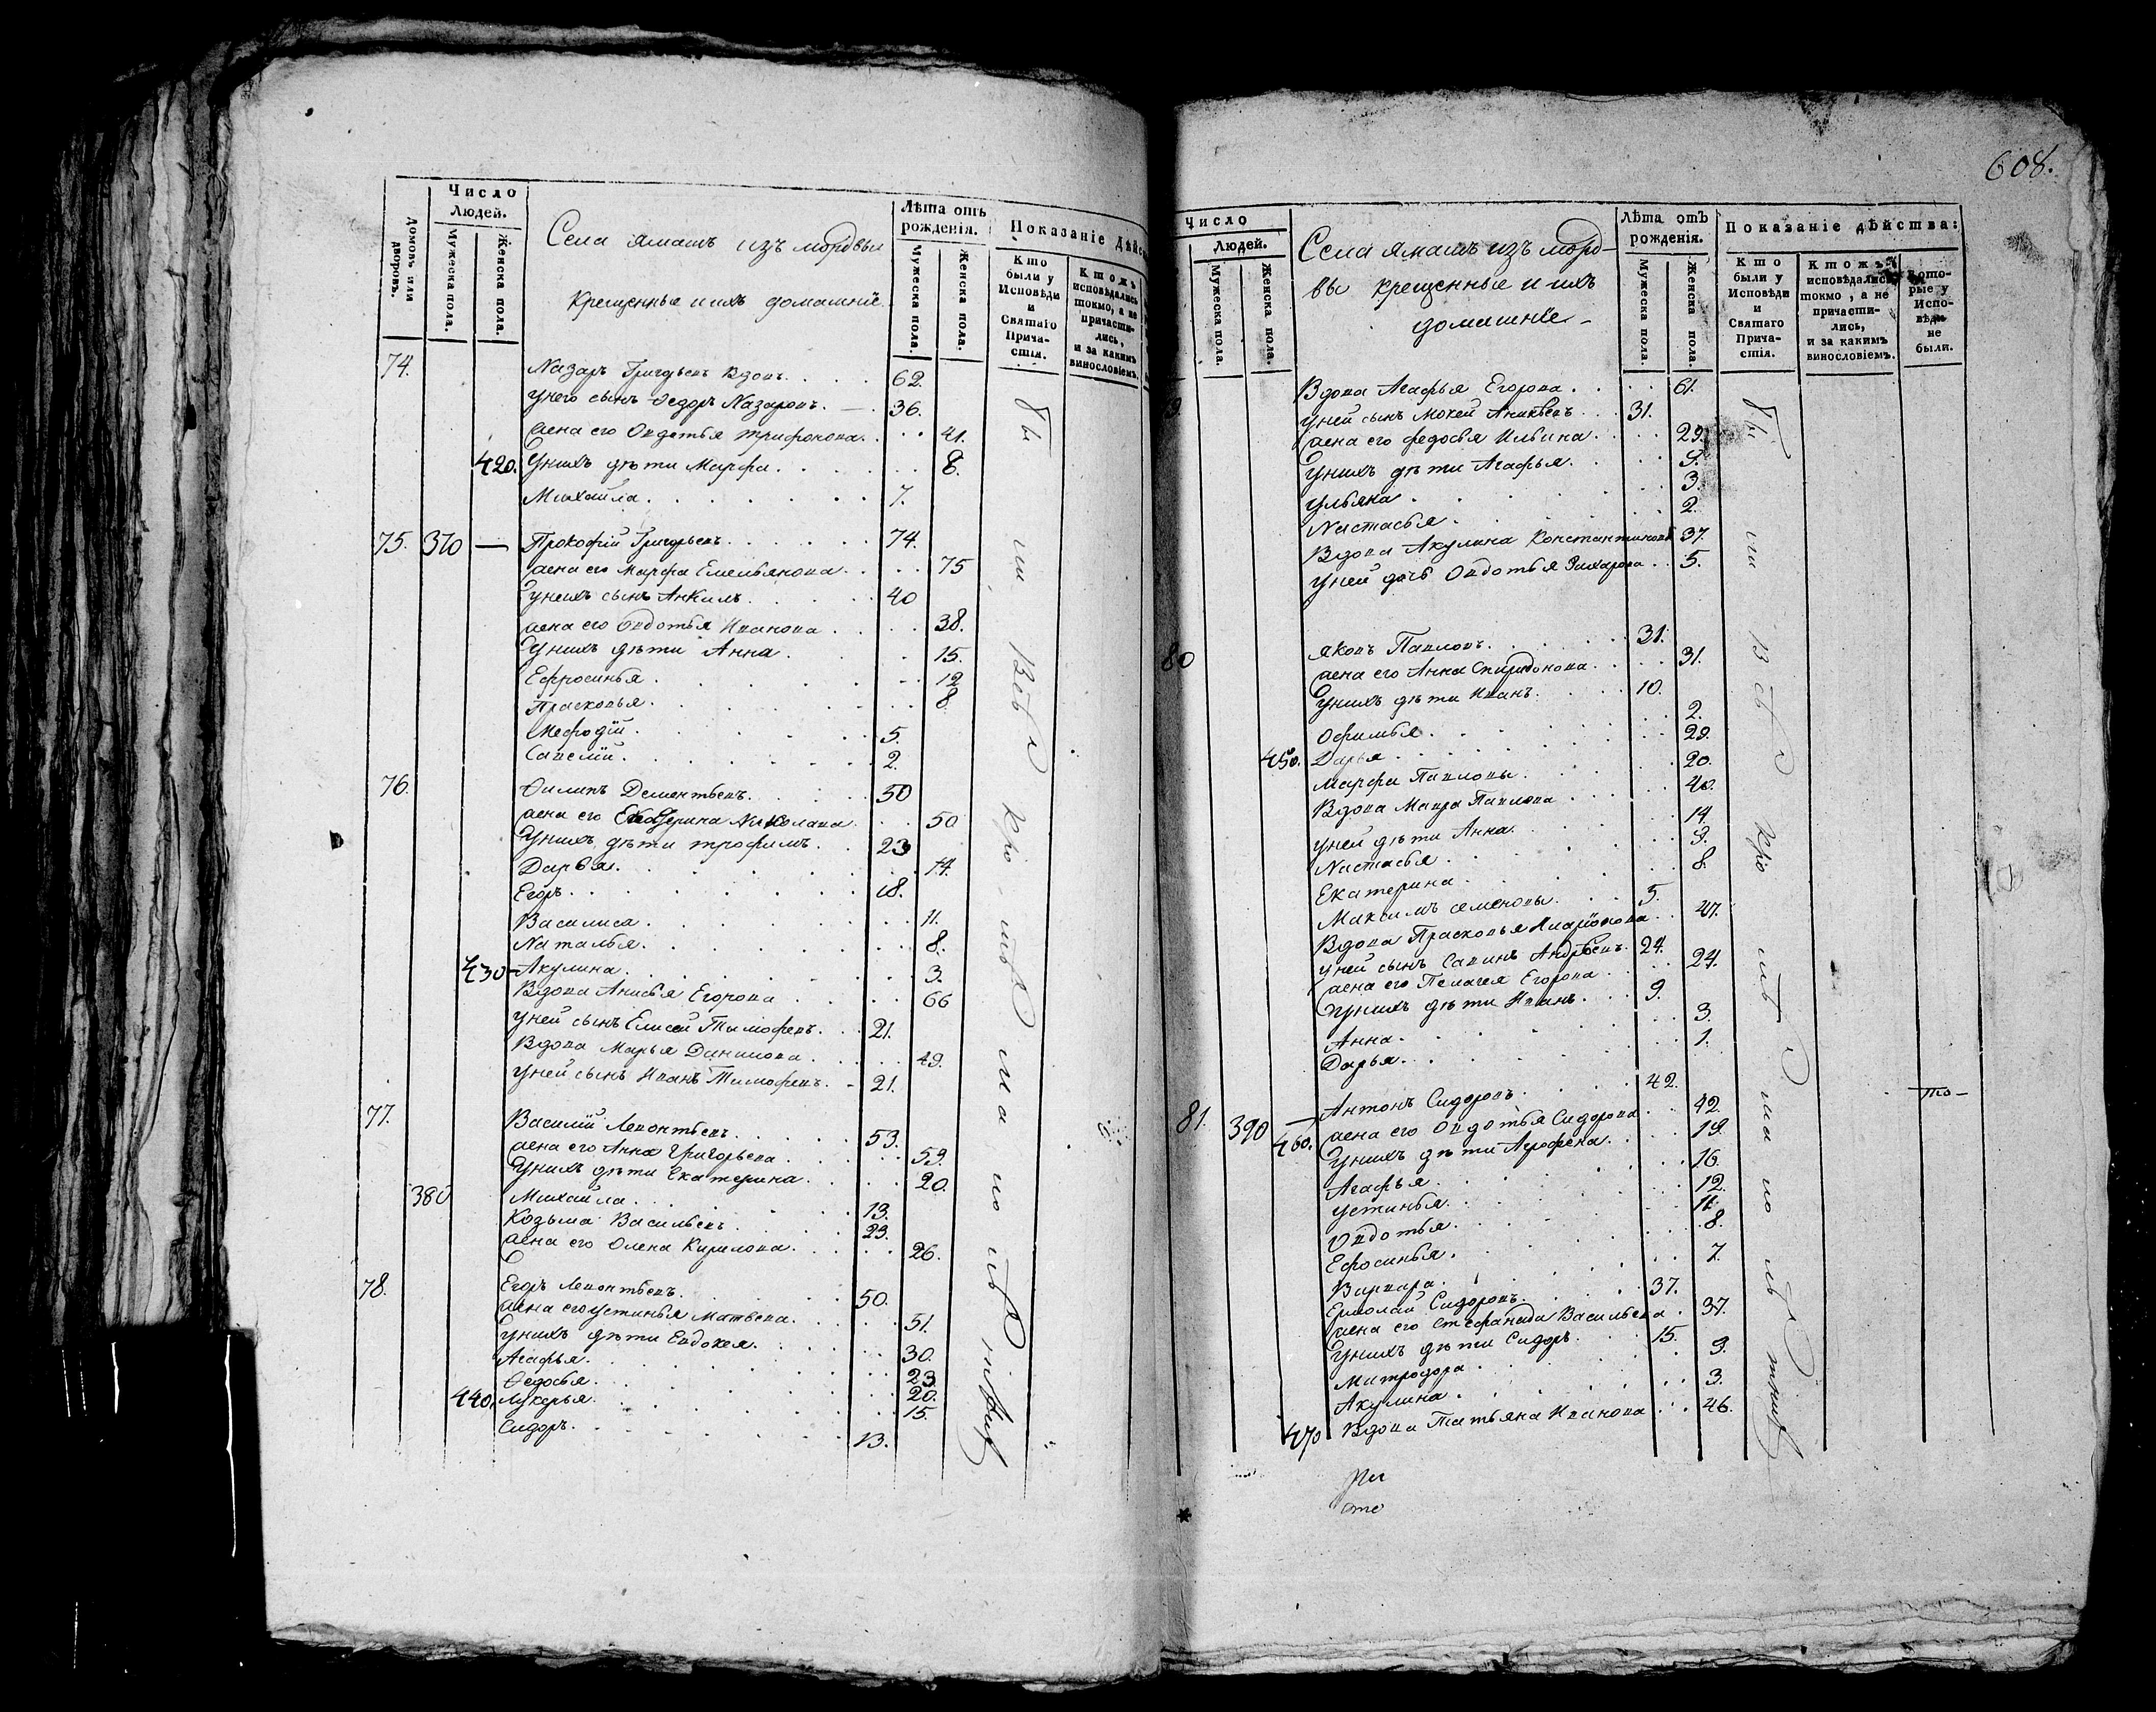 608.
Домовъ или дворовъ.
Число
Людей.
Мужеска пола.
Женска пола.
Села Ямашъ изъ мордвы
крещенные и ихъ домашніе
Лѣта отъ
рожденія.
Мужеска пола.
Женска пола.
Показаніе Дѣйс
Кто были у Исповѣди и Святаго Прича-стія.
Ктожъ исповѣдались токмо, а не причасти-лись, и за какимъ винословіемъ.
74. Назаръ Григорьевъ вдовъ 62.
у него сынъ Ѳедоръ Назаровъ. 36.
жена его Овдотья Трифонова. 41.
420. у нихъ дѣти Марфа. 8.
Михайла. 7.
75. 370 — Прокофій Григорьевъ 74.
жена его Марфа Емельянова 75
у нихъ сынъ Анкилъ 40
жена его Овдотья Иванова 38.
у нихъ дѣти Анна 15.
Ефросинья 12
Прасковья 8
Мефодій 5.
Савелій. 2.
76. Филипъ Дементьевъ 50
жена его Екатерина Николаева 50
у нихъ дѣти Трофимъ 23
Дарья 14.
Егоръ 18.
Василиса 11.
Наталья 8.
430 Акулина 3.
Вдова Анисья Егорова 66
у ней сынъ Елисей Тимофевъ. 21.
Вдова Марья Данилова 49.
у ней сынъ Иванъ Тимофевъ. 21.
77. Василій Левонтьевъ 53.
жена его Анна Григорьева 59.
у нихъ дѣти Екатерина 20.
380 Михайла 13.
Козьма Васильевъ 23.
жена его Олена Кирилова 26.
78. Егоръ Левонтьевъ 50.
жена его Устинья Матвева 51.
у нихъ дѣти Евдокея. 30.
Агафья 23
Ѳедосья 20.
440. Лукерья 15.
Сидоръ 13.
Бы ли Всѣ у испо
Число
Людей.
Мужеска пола.
Женска пола.
Села Ямашъ изъ морд-
вы крещенные и ихъ
домашніе
Лѣта отъ
рожденія.
Мужеска пола.
Женска пола.
Показаніе дѣйства:
Кто были у Исповѣди и Святаго Прича-стія.
Ктожъ исповѣдались токмо, а не причасти-лись, и за какимъ винословіемъ.
Кото-рые у Испо-вѣди не были.
Вдова Агафья Егорова 61.
у ней сынъ Мокей Аникѣевъ 31.
жена его Федосья Ильина 29.
у нихъ дѣти Агафья 9.
Ульяна 3.
Настасья 2.
Вдова Акулина Константинова 37.
у ней дочь Овдотья Захарова 5.
80 Яковъ Павловъ 31.
жена его Анна Спиридонова 31.
у нихъ дѣти Иванъ 10.
Офимья 2.
450. Дарья 29.
Марфа Павловы 20.
Вдова Мавра Павлова 40.
у ней дѣти Анна 14.
Настасья 9.
Екатерина 8.
Максимъ Семеновы 5.
Вдова Прасковья Иларіонова 47.
у ней сынъ Савинъ Андрѣевъ 24.
жена его Пелагея Егорова 24.
у нихъ дѣти Иванъ 9.
Анна 3.
Дарья 1.
81. 390 Антонъ Сидоровъ 42.
460. жена его Овдотья Сидорова 42.
у нихъ дѣти Агрофена 19.
Агафья 16.
Устинья 12.
Овдотья 11.
Ефросинья 8.
Варвара 7.
Ермолай Сидоровъ 37.
жена его Стефанида Васильева 37.
у нихъ дѣти Сидоръ 15.
Митродора 9.
Акулина 3.
470 Вдова Татьяна Иванова 46.
то-